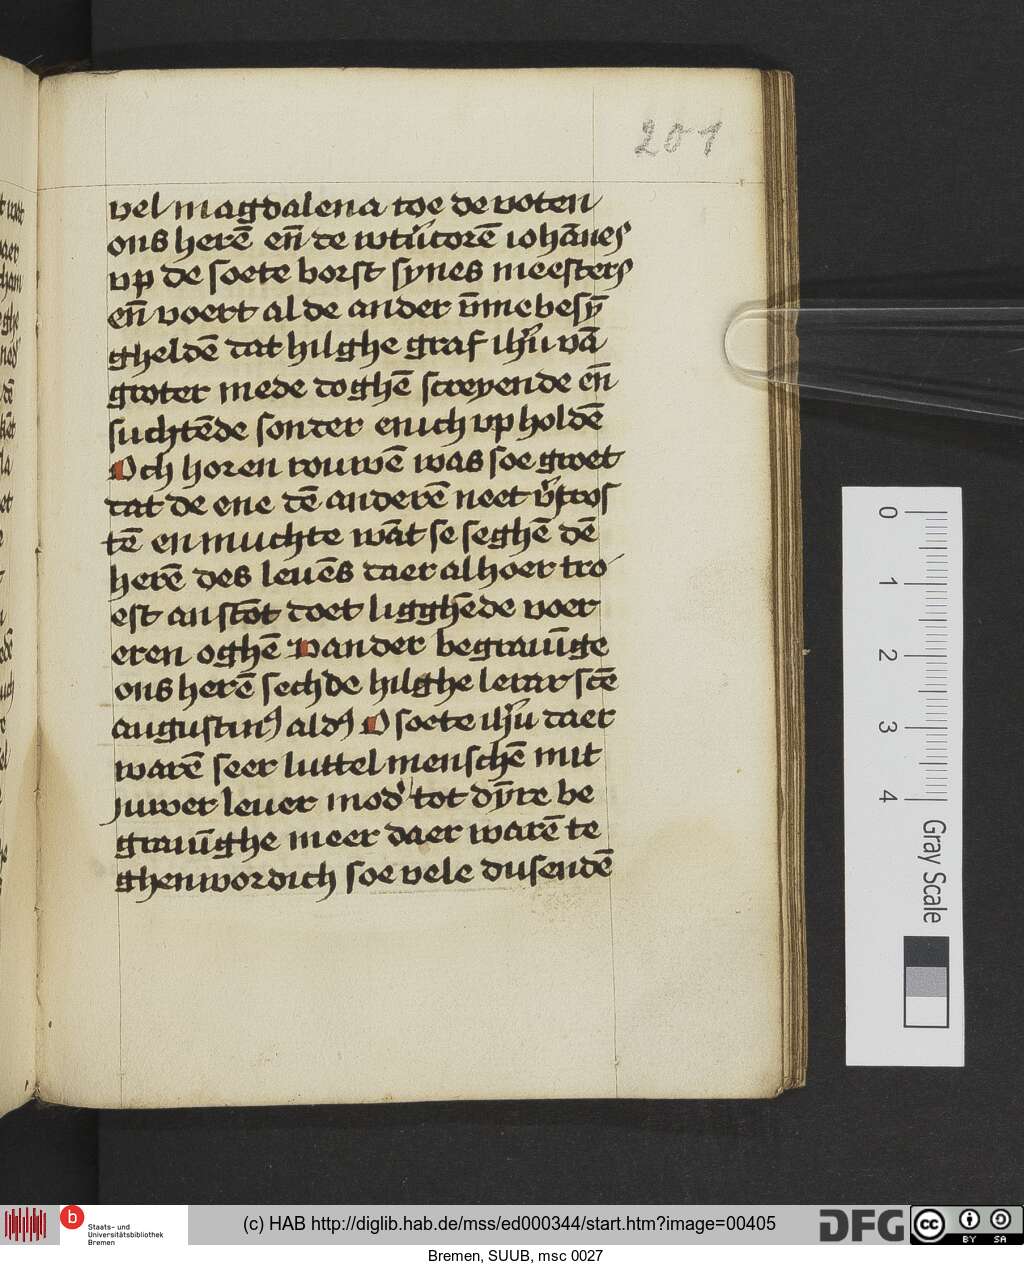 201
vel magdalena toe de voten
ons herē eñ de wtu̓corē iohānes
vp de soete borst synes meesters
eñ voert al de ander v̄me be sȳ
gheldē dat hilghe graf ihu̓ vā
groter mede doghē screyende eñ
suchtēde sonder enich vp holdē
Och horen rouwē was soe groet
dat de ene dē anderē neet v̓tros
tē en muchte wāt se seghē dē
herē des leuēs daer al hoer tro
est an stōt doet ligghēde voer
eren oghē Van der begrauīge
ons herē sech de hilghe lerar scē
augustinꝰ aldꝰ O soete ihu̓ daer
warē seer luttel menschē mit
juwer leuer mod̓ tot dȳre be
grauīghe meer daer warē te
ghenwordich soe vele dusendē
0
1
2
3
4
Gray Scale
b
Staats- und
Universitätsbibliothek
Bremen
(c) HAB http://diglib.hab.de/mss/ed000344/start.htm?image=00405
DFG
cc
BY SA
Bremen, SUUB, msc 0027